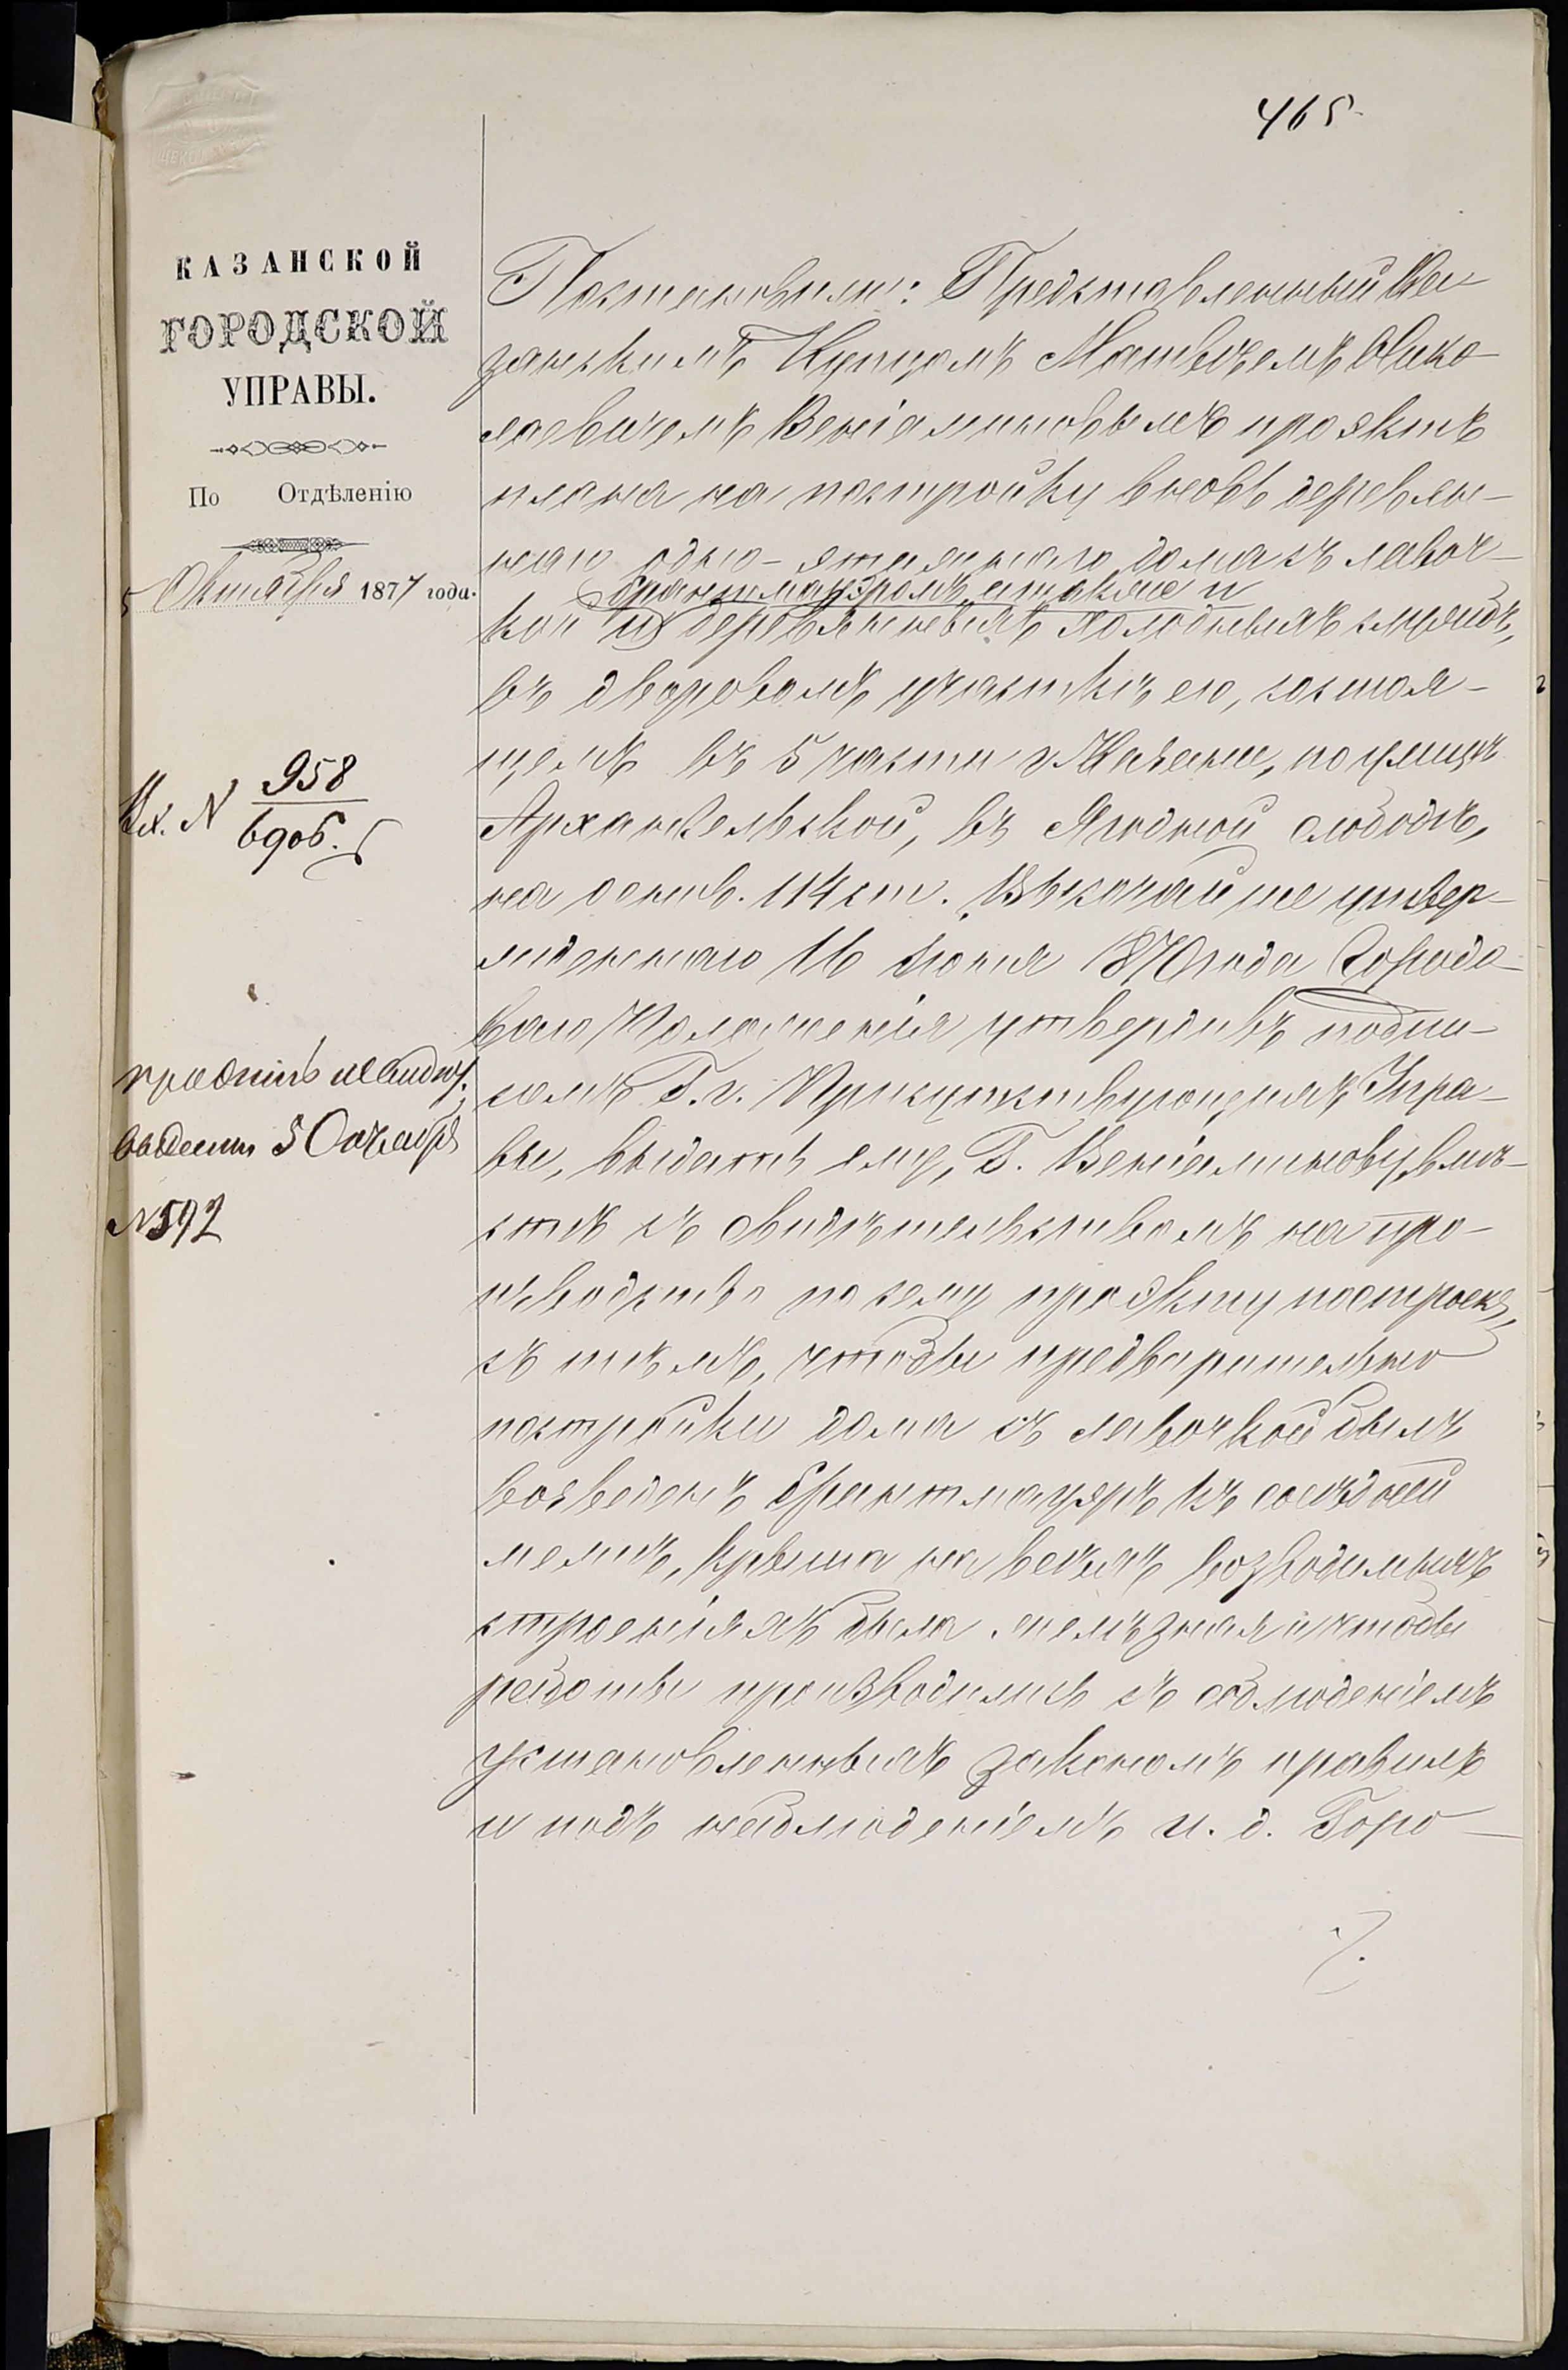 465
КАЗАНСКОЙ
ГОРОДСКОЙ
УПРАВЫ.
По Отдѣленію
5 Октября 1877 года.
Вх. N 958
6906.
5 Октября
N 592
Постановили: Представленный Ка-
занскимъ Купцомъ Матвеемъ Нико-
лаевичемъ Веніаминовымъ проэктъ
плана на постройку вновь деревян-
наго одно-этажнаго дома съ лавоч-
брантмауэромъ, а также и
кой и деревянныхъ холодныхъ службъ,
въ дворовомъ участкѣ его, состоя-
щемъ въ 5 части г. Казани, по улицѣ
Архангельской, въ Ягодной слободѣ,
на основ. 114 ст. Высочайше утвер-
жденнаго 16 Іюня 1870 года Городо-
ваго Положенія утвердивъ подпи-
сомъ Г.г. Присутствующихъ Упра-
вы, выдать ему, Г. Веніаминову, вмѣ-
стѣ съ свидѣтельствомъ на про-
изводство по сему проэкту построекъ,
съ тѣмъ, чтобы предварительно
постройки дома съ лавочкой былъ
возведенъ брантмауэръ къ сосѣдней
межѣ, крыша на всѣхъ возводимыхъ
строеніяхъ была желѣзная и чтобы
работы производились съ соблюденіемъ
установленныхъ закономъ правилъ
и подъ наблюденіемъ и. д. Горо-